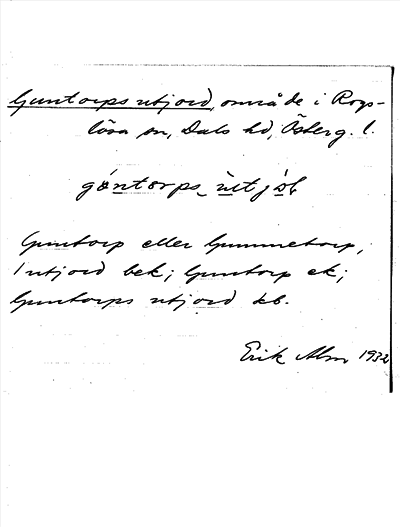 Guntorps utjord, område i Rogs-
lösa sn, Dals hd, Österg. l.
go̱ntorps ùtjo̱l
Guntorp eller Gummetorp,
1 utjord bek; Guntorp ek;
Guntorps utjord kb.
Erik Alm 1932